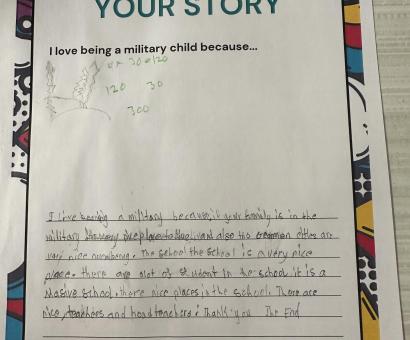 YOUR STORY
I love being a military child because...
30 120
120 30
300
I love being a military because if your family is in the
military and also the cities are
very nice . The school the school is a very nice
place. there are alot of student in the school it is a
Masive school. there nice places in the school. There are
nice teachers and headteachers. Thank you The End